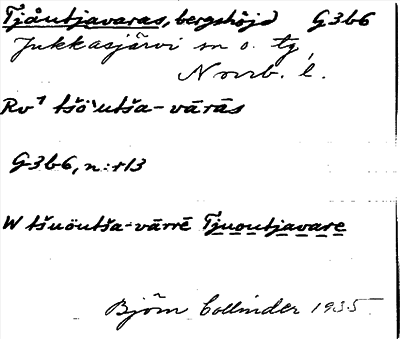 Tjåutjavaras, bergshöjd G3b6
Jukkasjärvi sn o. tg,
Norrb. l.
Rv⁷ tšö`utša-vārās
G3b6, n:r 13
W tšuöutša-vārrē Tjuoutjavare
Björn Collinder 1935